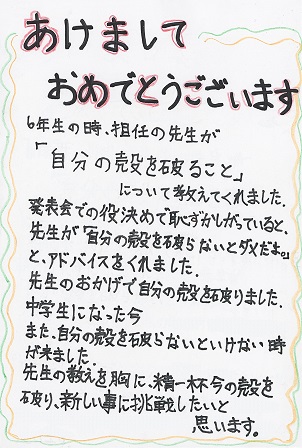 あけまして
おめでとうございます
6年生の時、担任の先生が
「自分の殻を破ること」
について教えてくれました。
発表会での役決めで恥ずかしがっていると、
先生が「自分の殻を破らないとダメだよ。」
と、アドバイスをくれました。
先生のおかげで自分の殻を破りました。
中学生になった今
また、自分の殻を破らないといけない時
が来ました。
先生の教えを胸に、精一杯今の殻を
破り、新しい事に挑戦したいと
思います。